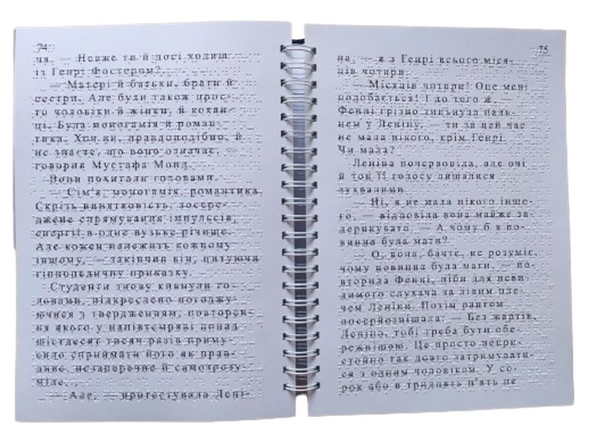 74
ня. — Невже ти й досі ходиш
із Генрі Фостером?
— Матері й батьки, брати й
сестри. Але були також прос-
то чоловіки й жінки, й кохан-
ці. Була моногамія й роман-
тика. Хоч ви, правдоподібно, й
не знаєте, що воно означає, —
говорив Мустафа Монд.
Вони похитали головами.
— Сім'я, моногамія, романтика.
Скрізь винятковість, зосере-
джене спрямування імпульсів,
енергії в одне вузьке річище.
Але кожен належить кожному
іншому, — закінчив він, цитуючи
гіпнопедичну приказку.
Студенти знову кивнули го-
ловами, підкреслено погоджу-
ючися з твердженням, повторен-
ня якого у напівтемряві понад
шістдесят тисяч разів приму-
сило сприймати його як прав-
диве, незаперечне й самозрозу-
міле...
— Але, — протестувала Лені-
75
на, — я з Генрі всього міся-
ців чотири.
— Місяців чотири! Оце мені
подобається! І до того ж,
Фенні грізно тикнула паль-
цем у Леніну, — ти за цей час
не мала нікого, крім Генрі.
Чи мала?
Леніна почервоніла, але очі
й тон її голосу лишалися
зухвалими.
— Ні, я не мала нікого іншо-
го, — відповіла вона майже за-
дерикувато. — А чому б я по-
винна була мати?
— О, вона, бачте, не розуміє,
чому повинна була мати, — по-
вторила Фенні, ніби для неви-
димого слухача за лівим пле-
чем Леніни. Потім раптом
посерйознішала: — Без жартів,
Леніно, тобі треба бути обе-
режнішою. Це просто непри-
стойно так довго затримувати-
ся з одним чоловіком. У со-
рок або в тридцять п'ять це